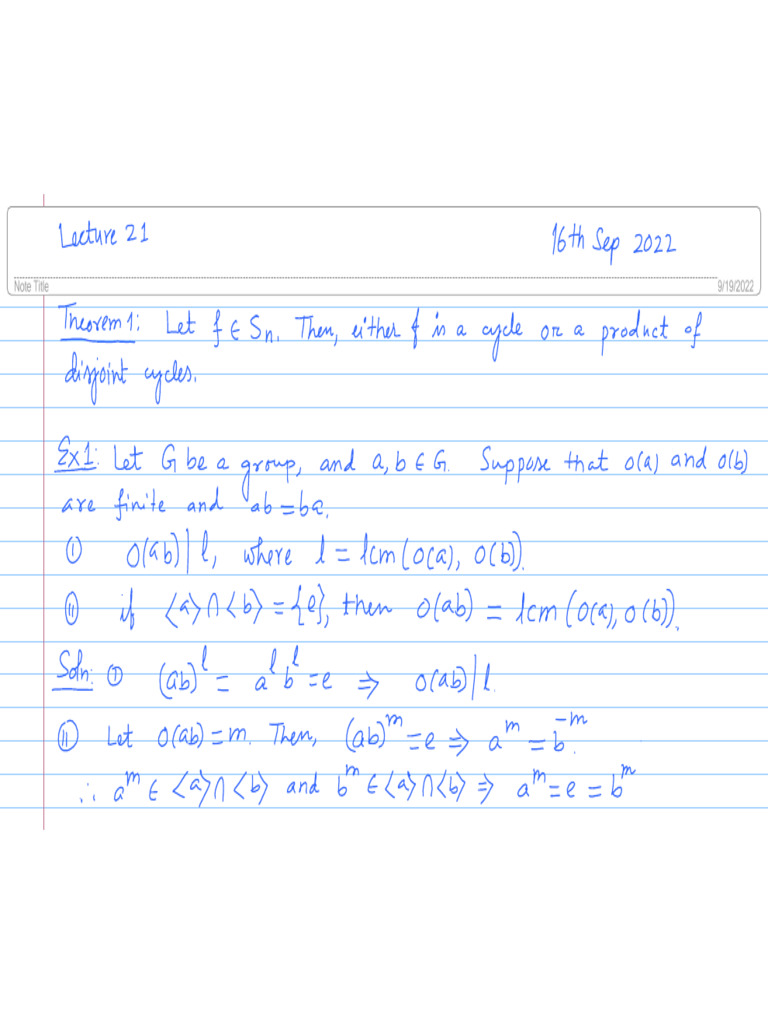 Lecture 21
16th Sep 2022
Note Title
9/19/2022
Theorem 1: Let f ∈ Sn. Then, either f is a cycle or a product of
disjoint cycles.
Ex 1: Let G be a group, and a, b ∈ G. Suppose that o(a) and o(b)
are finite and ab = ba.
(i) o(ab) | l, where l = lcm(o(a), o(b)).
(ii) if ⟨a⟩ ∩ ⟨b⟩ = {e}, then o(ab) = lcm(o(a), o(b)).
Soln: (i) (ab)^l = a^l b^l = e ⇒ o(ab) | l.
(ii) Let o(ab) = m. Then, (ab)^m = e ⇒ a^m = b^-m.
∴ a^m ∈ ⟨a⟩ ∩ ⟨b⟩ and b^m ∈ ⟨a⟩ ∩ ⟨b⟩ ⇒ a^m = e = b^m